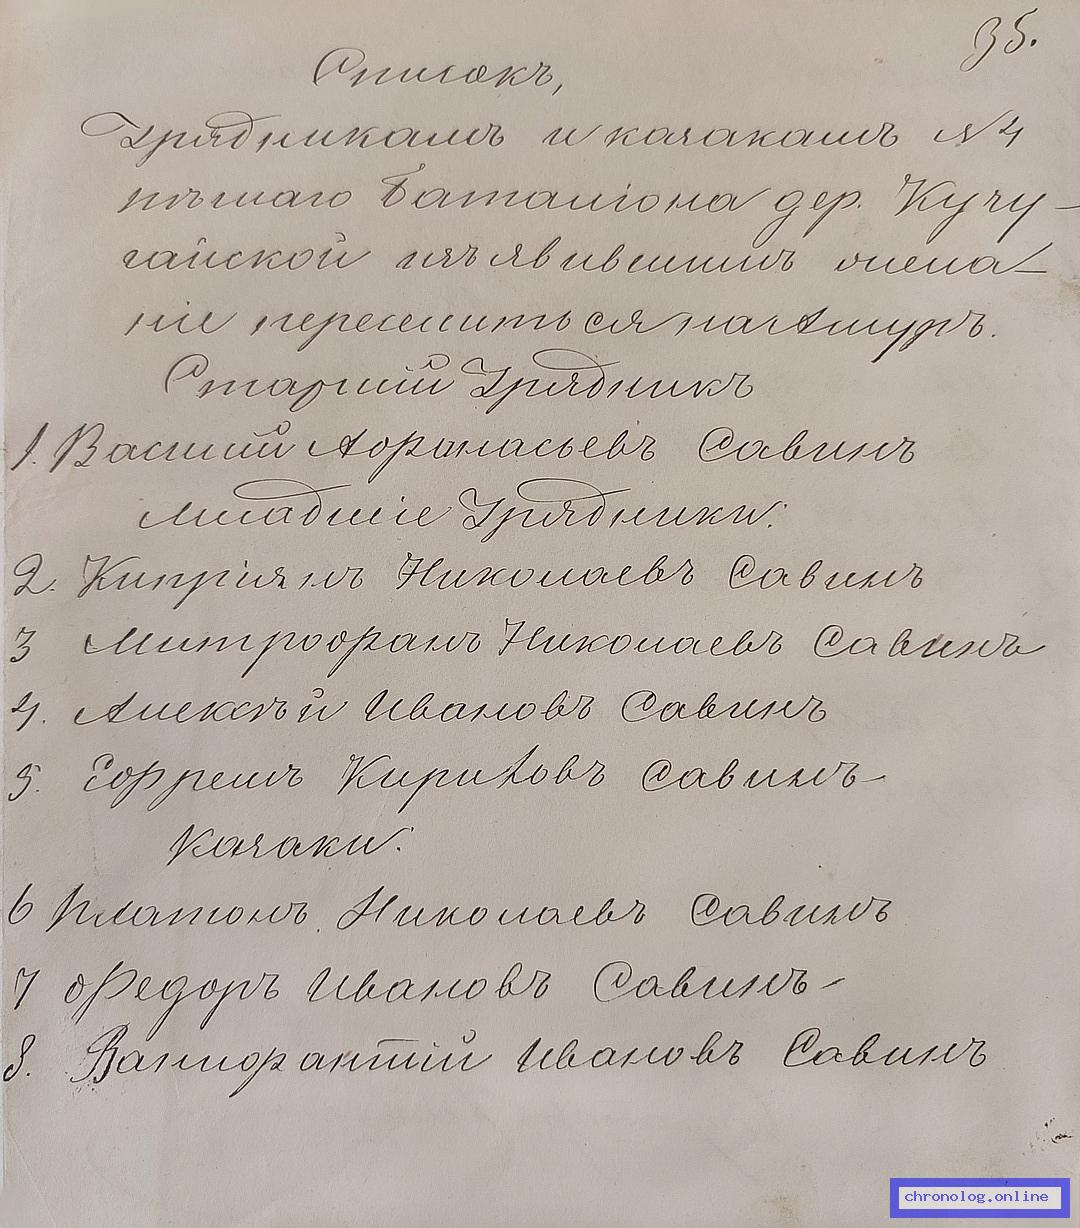 35.
Списокъ,
Урядникамъ и казакамъ №4
пѣшаго баталіона дер. Кучу-
гайской изъявившимъ жела-
ніе переселиться на Амуръ.
Старшій Урядникъ
1. Василій Афанасьевъ Савинъ
младшіе Урядники:
2. Кипріянъ Николаевъ Савинъ
3 Митрофанъ Николаевъ Савинъ
4. Алексѣй Ивановъ Савинъ
5. Ефремъ Кириловъ Савинъ
Казаки:
6 Платонъ Николаевъ Савинъ
7 Федоръ Ивановъ Савинъ
8. Ивановъ Савинъ
chronolog.online